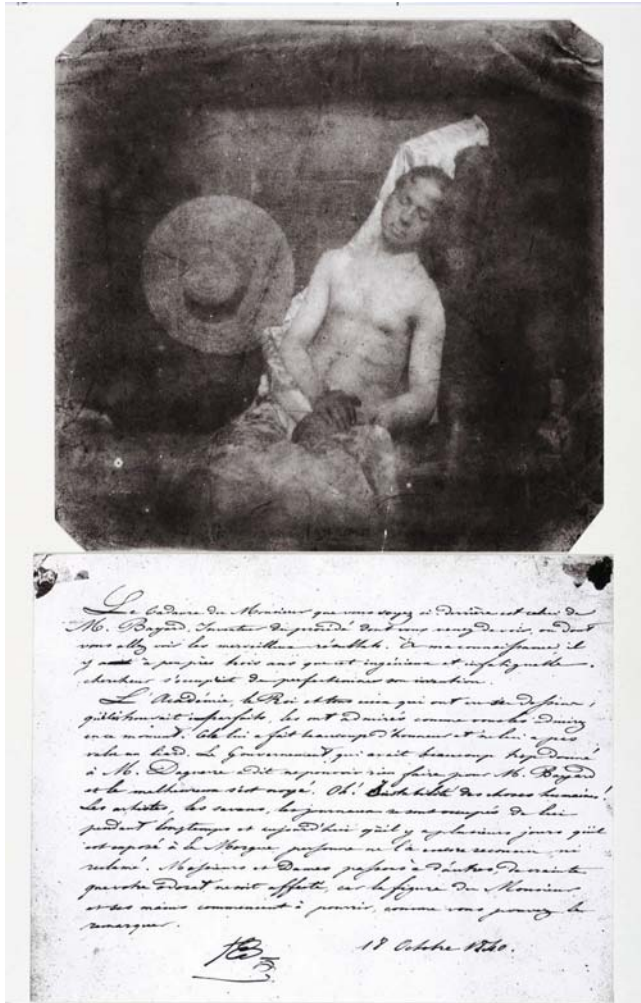 Le cadavre du Monsieur que vous voyez ci-derrière est celui de
M. Bayard, inventeur du procédé dont vous venez de voir, ou dont
vous allez voir les merveilleux résultats. À ma connaissance, il
y a à peu près trois ans que cet ingénieux et infatiguable
chercheur s'occupait de perfectionner son invention.
L'Académie, le Roi et tous ceux qui ont vu ses dessins,
qu'il trouvait imparfaits, les ont admirés comme vous les admirez
en ce moment. Cela lui a fait beaucoup d'honneur et ne lui a pas
valu un liard. Le Gouvernement, qui avait beaucoup trop donné
à M. Daguerre a dit ne pouvoir rien faire pour M. Bayard
et le malheureux s'est noyé. Oh! instabilité des choses humaines!
Les artistes, les savans, les journaux se sont occupés de lui
pendant longtemps et aujourd'hui qu'il y a plusieurs jours qu'il
est exposé à la Morgue, personne ne l'a encore reconnu, ni
réclamé. Messieurs et Dames, passons à d'autres, de crainte
que votre odorat ne soit affecté, car la figure du Monsieur
et ses mains commencent à pourrir, comme vous pouvez le
remarquer.
18 Octobre 1840.